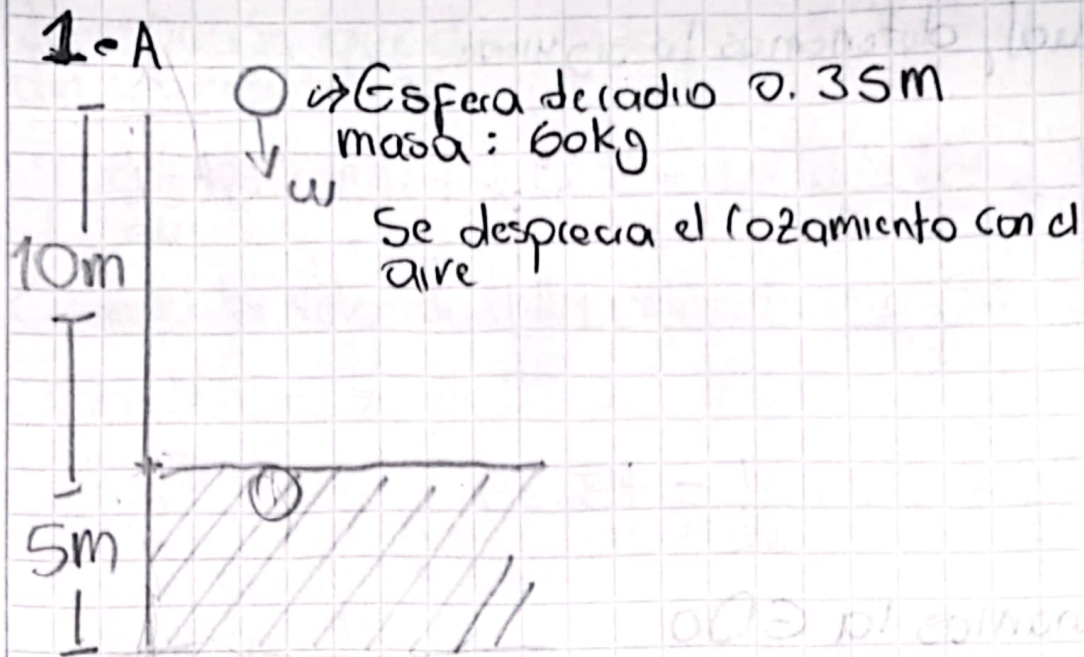 1-A
Esfera de radio 0.35m
masa: 60kg
w
Se desprecia el rozamiento con el
aire
10m
5m